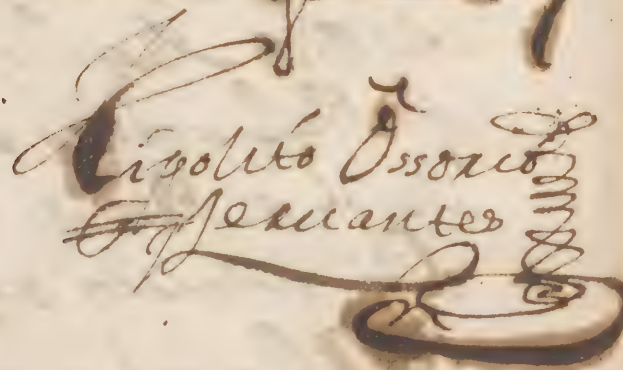 Hipolito Ossorio
Seruantes